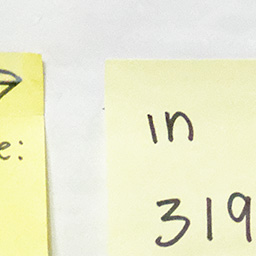 e:
in
319